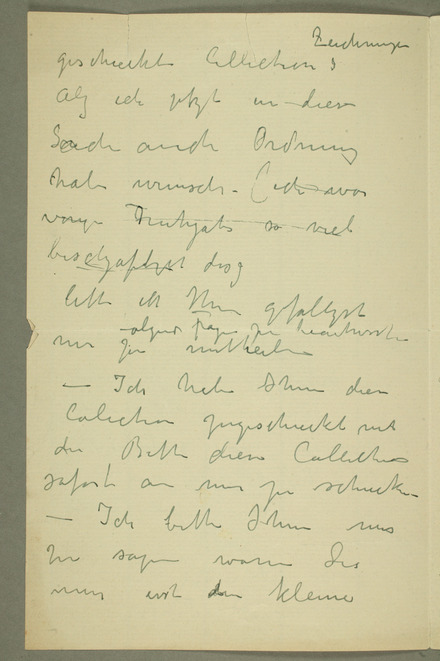 Zeichnungen
geschickte Collection
Als ich jetzt in diese
Sache auch Ordnung
habe wünsche - (ich war
vorige Frühjahr so viel
beschäftigt das
bitte ich Ihnen gefälligst
Frage zu beantworten
mir zu mittheilen
— Ich habe Ihnen diese
Collection zugeschickt mit
der Bitte diese Collection
sofort an mir zu schicken
— Ich bitte Ihnen mir
zu sagen warum Sie
mir erst den kleine